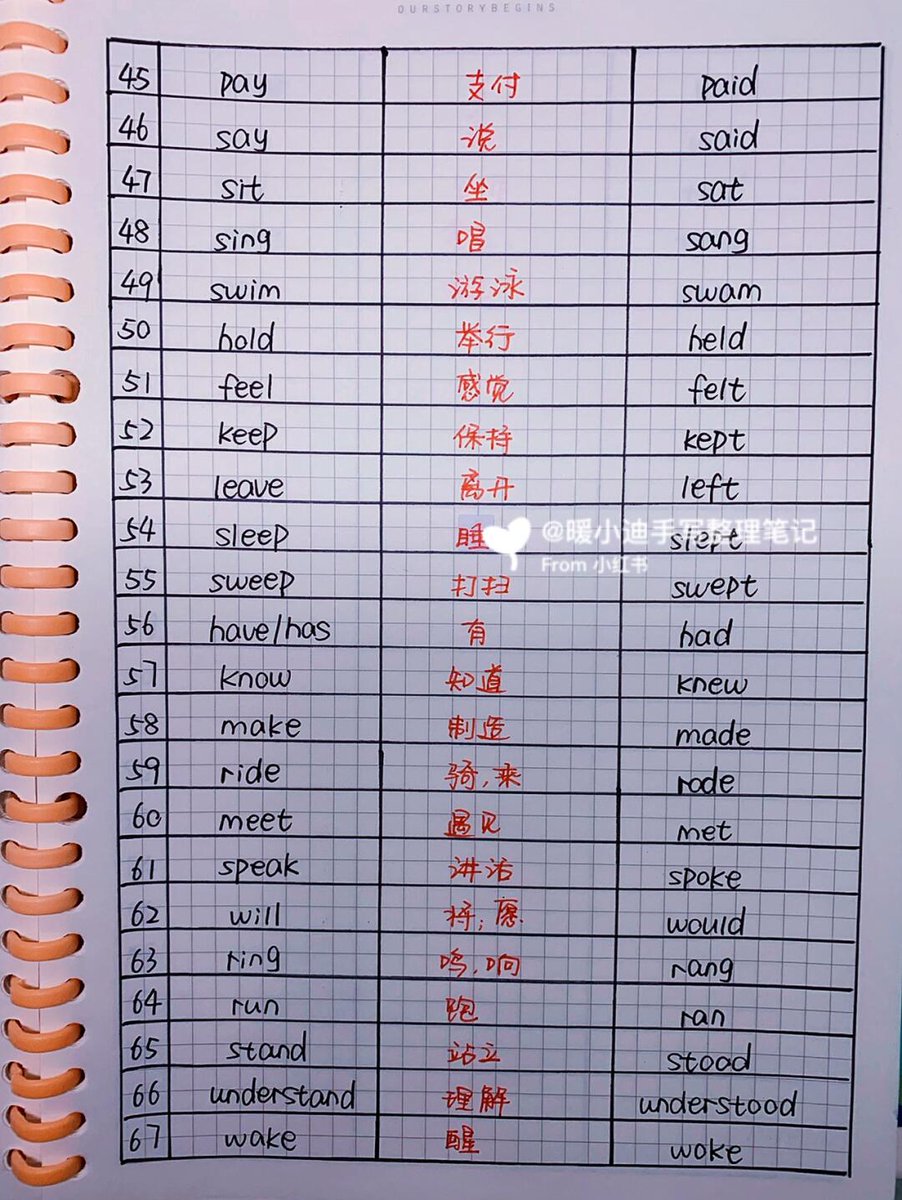 OURSTORYBEGINS
45 pay 支付 paid
46 say 说 said
47 sit 坐 sat
48 sing 唱 sang
49 swim 游泳 swam
50 hold 举行 held
51 feel 感觉 felt
52 keep 保持 kept
53 leave 离开 left
54 sleep 睡 slept
@暖小迪手写整理笔记
From 小红书
55 sweep 打扫 swept
56 have/has 有 had
57 know 知道 knew
58 make 制造 made
59 ride 骑,乘 rode
60 meet 遇见 met
61 speak 讲话 spoke
62 will 将;愿 would
63 ring 鸣,响 rang
64 run 跑 ran
65 stand 站立 stood
66 understand 理解 understood
67 wake 醒 woke